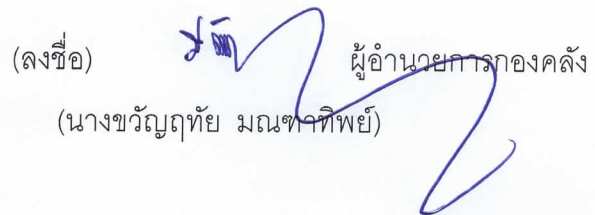 (ลงชื่อ) ผู้อำนวยการกองคลัง
(นางขวัญฤทัย มณฑาทิพย์)